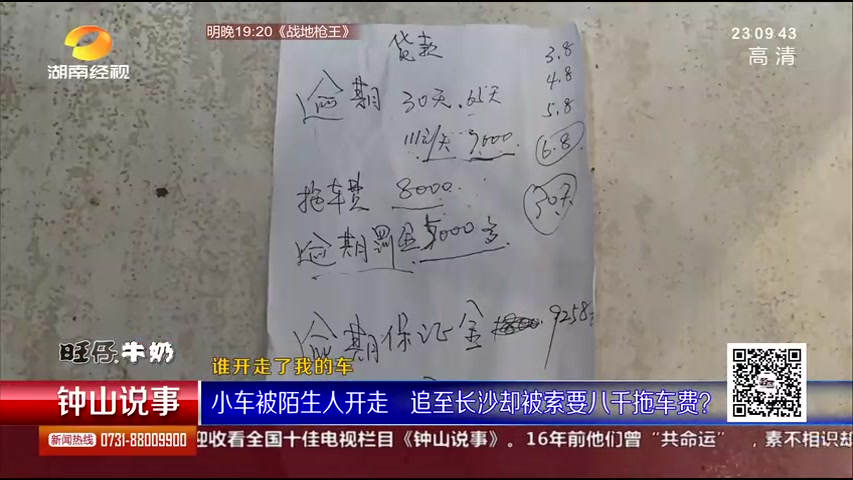 明晚19:20《战地枪王》
23:09:43
高清
湖南经视
贷款
3.8
4.8
5.8
6.8
30天
逾期 30天.65天
3000
拖车费 8000
逾期罚金 5000多
逾期保证金 9258
旺仔牛奶
谁开走了我的车
钟山说事
小车被陌生人开走 追至长沙却被索要八千拖车费?
新闻热线 0731-88009900
迎收看全国十佳电视栏目《钟山说事》。16年前他们曾“共命运”,素不相识却